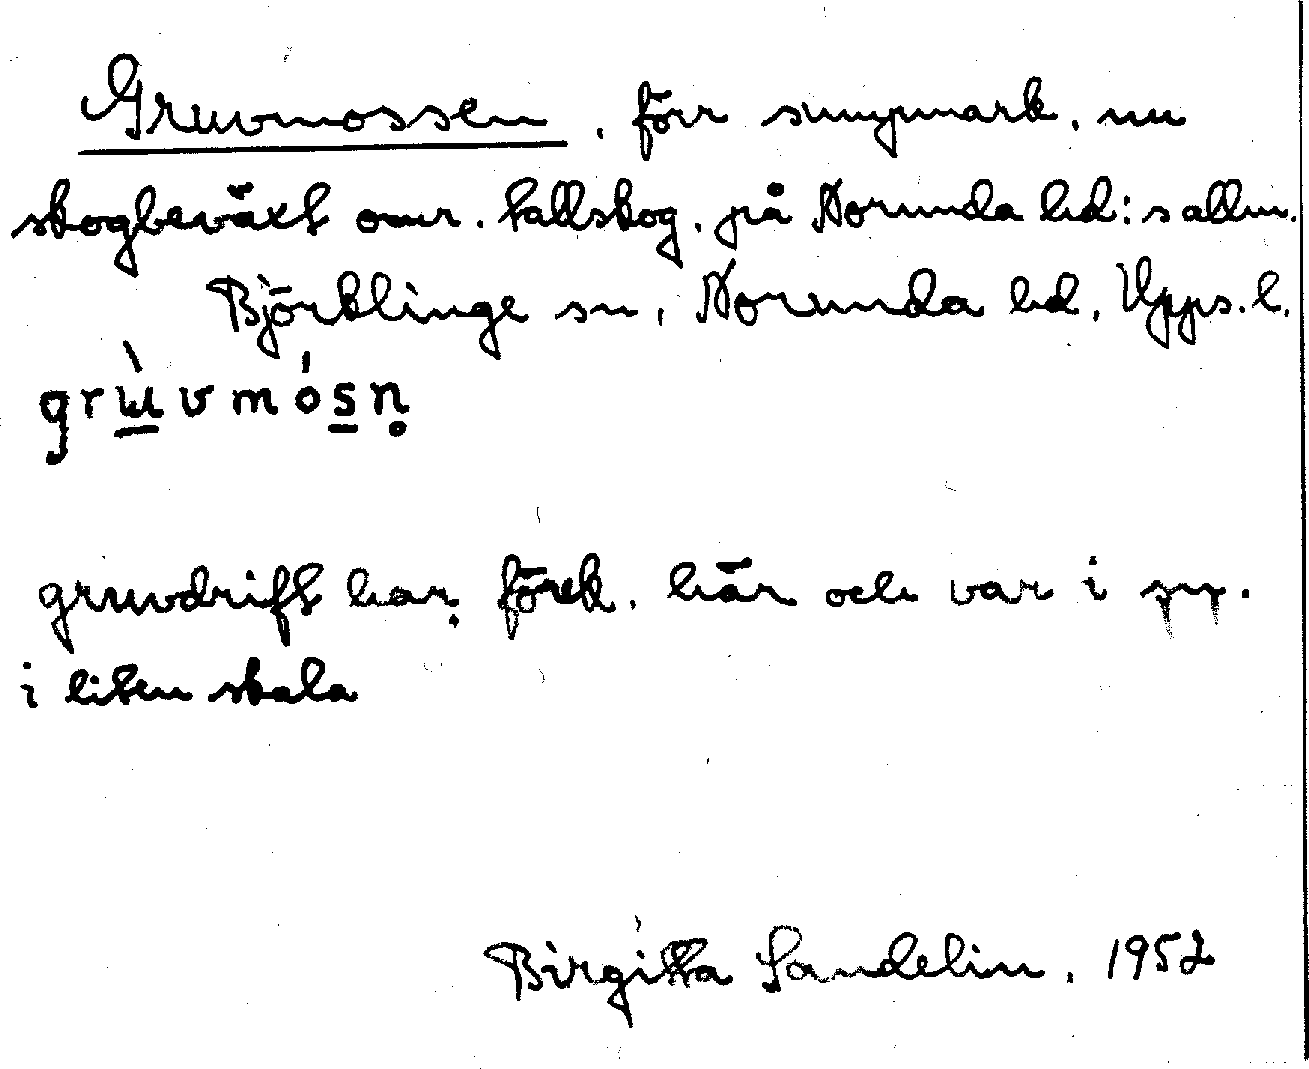 Gruvmossen, förr sumpmark, nu
skogbeväxt omr. tallskog, på Norunda hd:s allm.
Björklinge sn, Norunda hd, Upps. l.
grùvmósn̥
gruvdrift har förek. här och var i sn.
i liten skala
Birgitta Sandelin, 1952